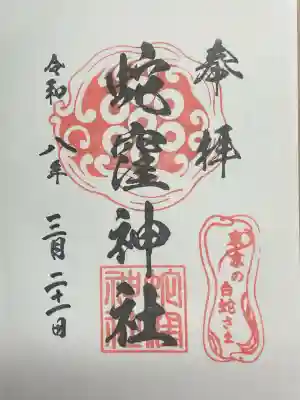 奉拝
東京の白蛇さま
蛇窪神社
蛇窪神社
令和八年
三月二十一日